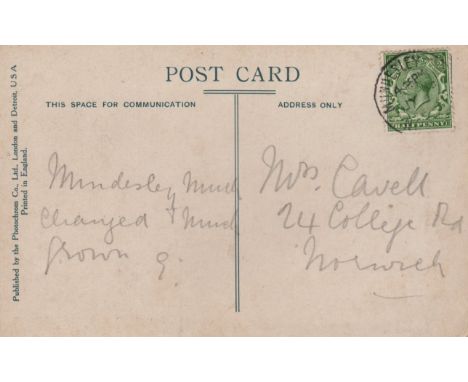 POST CARD
THIS SPACE FOR COMMUNICATION
ADDRESS ONLY
MUNDESLEY
HALFPENNY
Published by the Photochrom Co., Ltd., London and Detroit, U.S.A
Printed in England.
Mundesley much
changed & much
grown
Mrs. Cavell
24 College Rd
Norwich